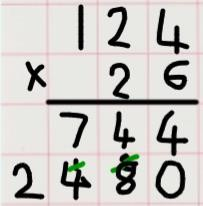 124
x 26
744
2480